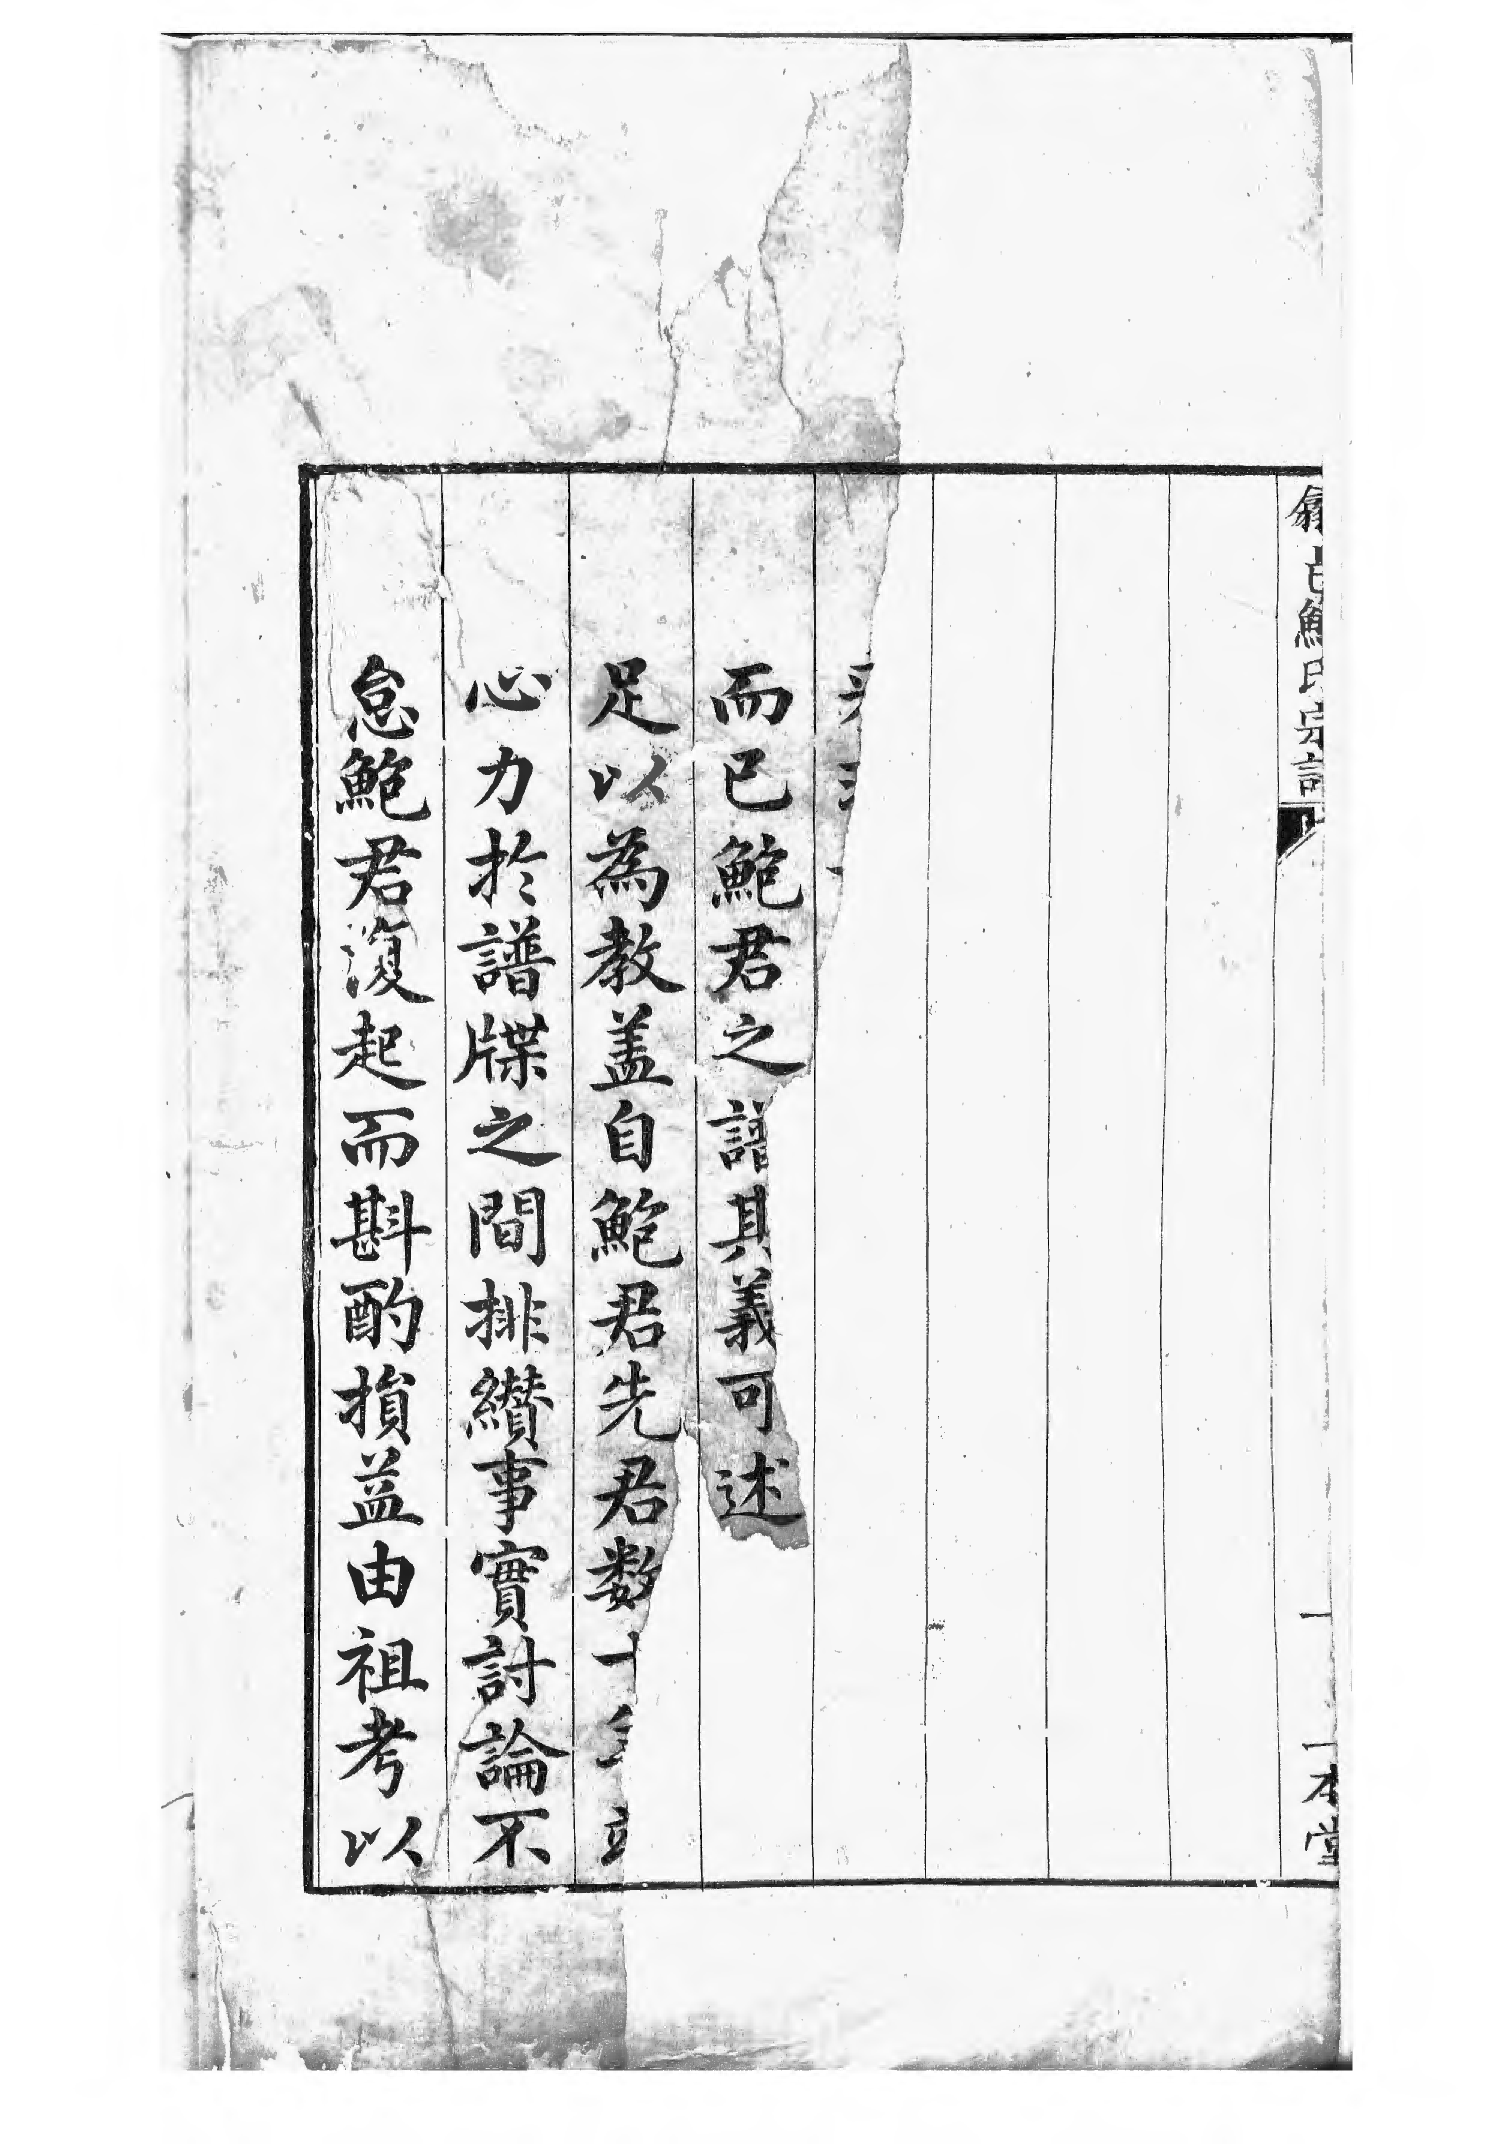 鮑氏宗譜
一
一本堂
而已鮑君之譜其義可述
足以為教蓋自鮑君先君数十年
心力於譜牒之間排纘事實討論不
怠鮑君復起而斟酌損益由祖考以